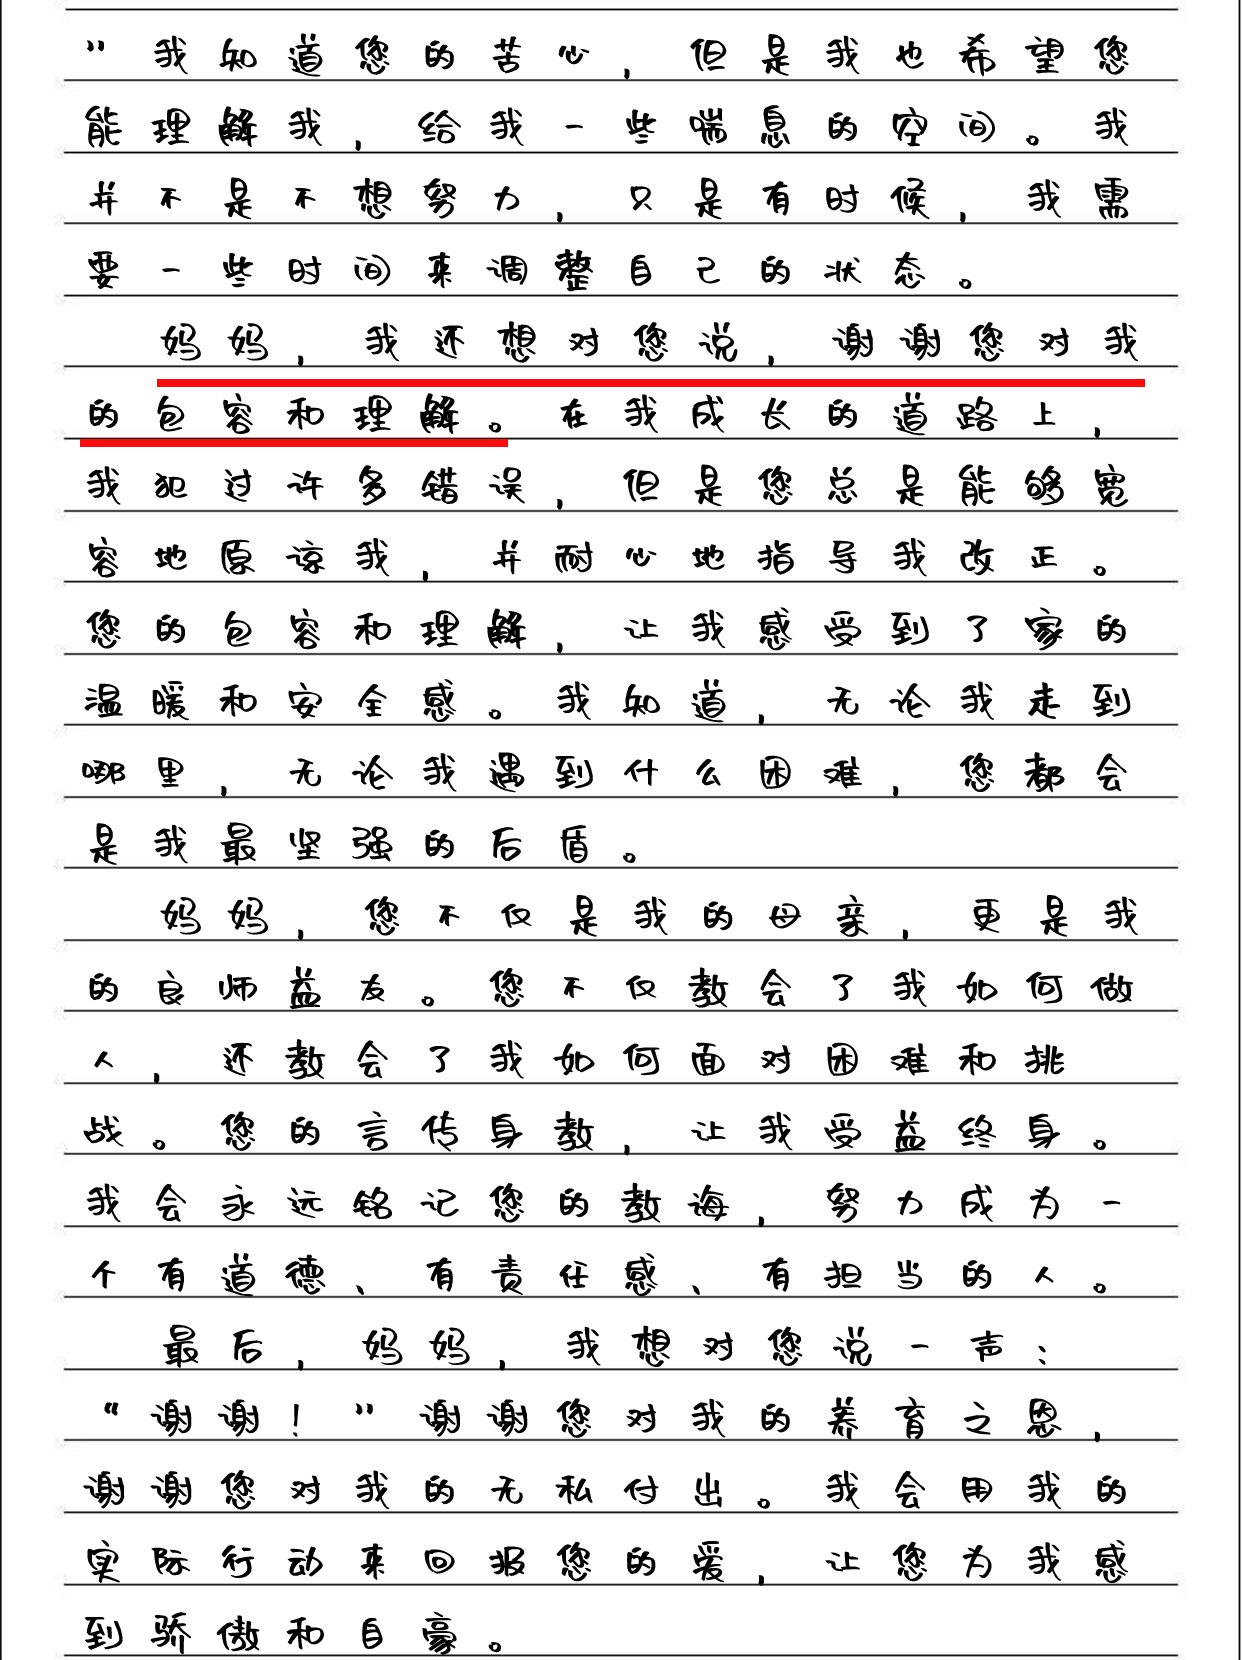 ”我知道您的苦心，但是我也希望您
能理解我，给我一些喘息的空间。我
并不是不想努力，只是有时候，我需
要一些时间来调整自己的状态。
妈妈，我还想对您说，谢谢您对我
的包容和理解。在我成长的道路上，
我犯过许多错误，但是您总是能够宽
容地原谅我，并耐心地指导我改正。
您的包容和理解，让我感受到了家的
温暖和安全感。我知道，无论我走到
哪里，无论我遇到什么困难，您都会
是我最坚强的后盾。
妈妈，您不仅是我的母亲，更是我
的良师益友。您不仅教会了我如何做
人，还教会了我如何面对困难和挑
战。您的言传身教，让我受益终身。
我会永远铭记您的教诲，努力成为一
个有道德、有责任感、有担当的人。
最后，妈妈，我想对您说一声：
“谢谢！”谢谢您对我的养育之恩，
谢谢您对我的无私付出。我会用我的
实际行动来回报您的爱，让您为我感
到骄傲和自豪。